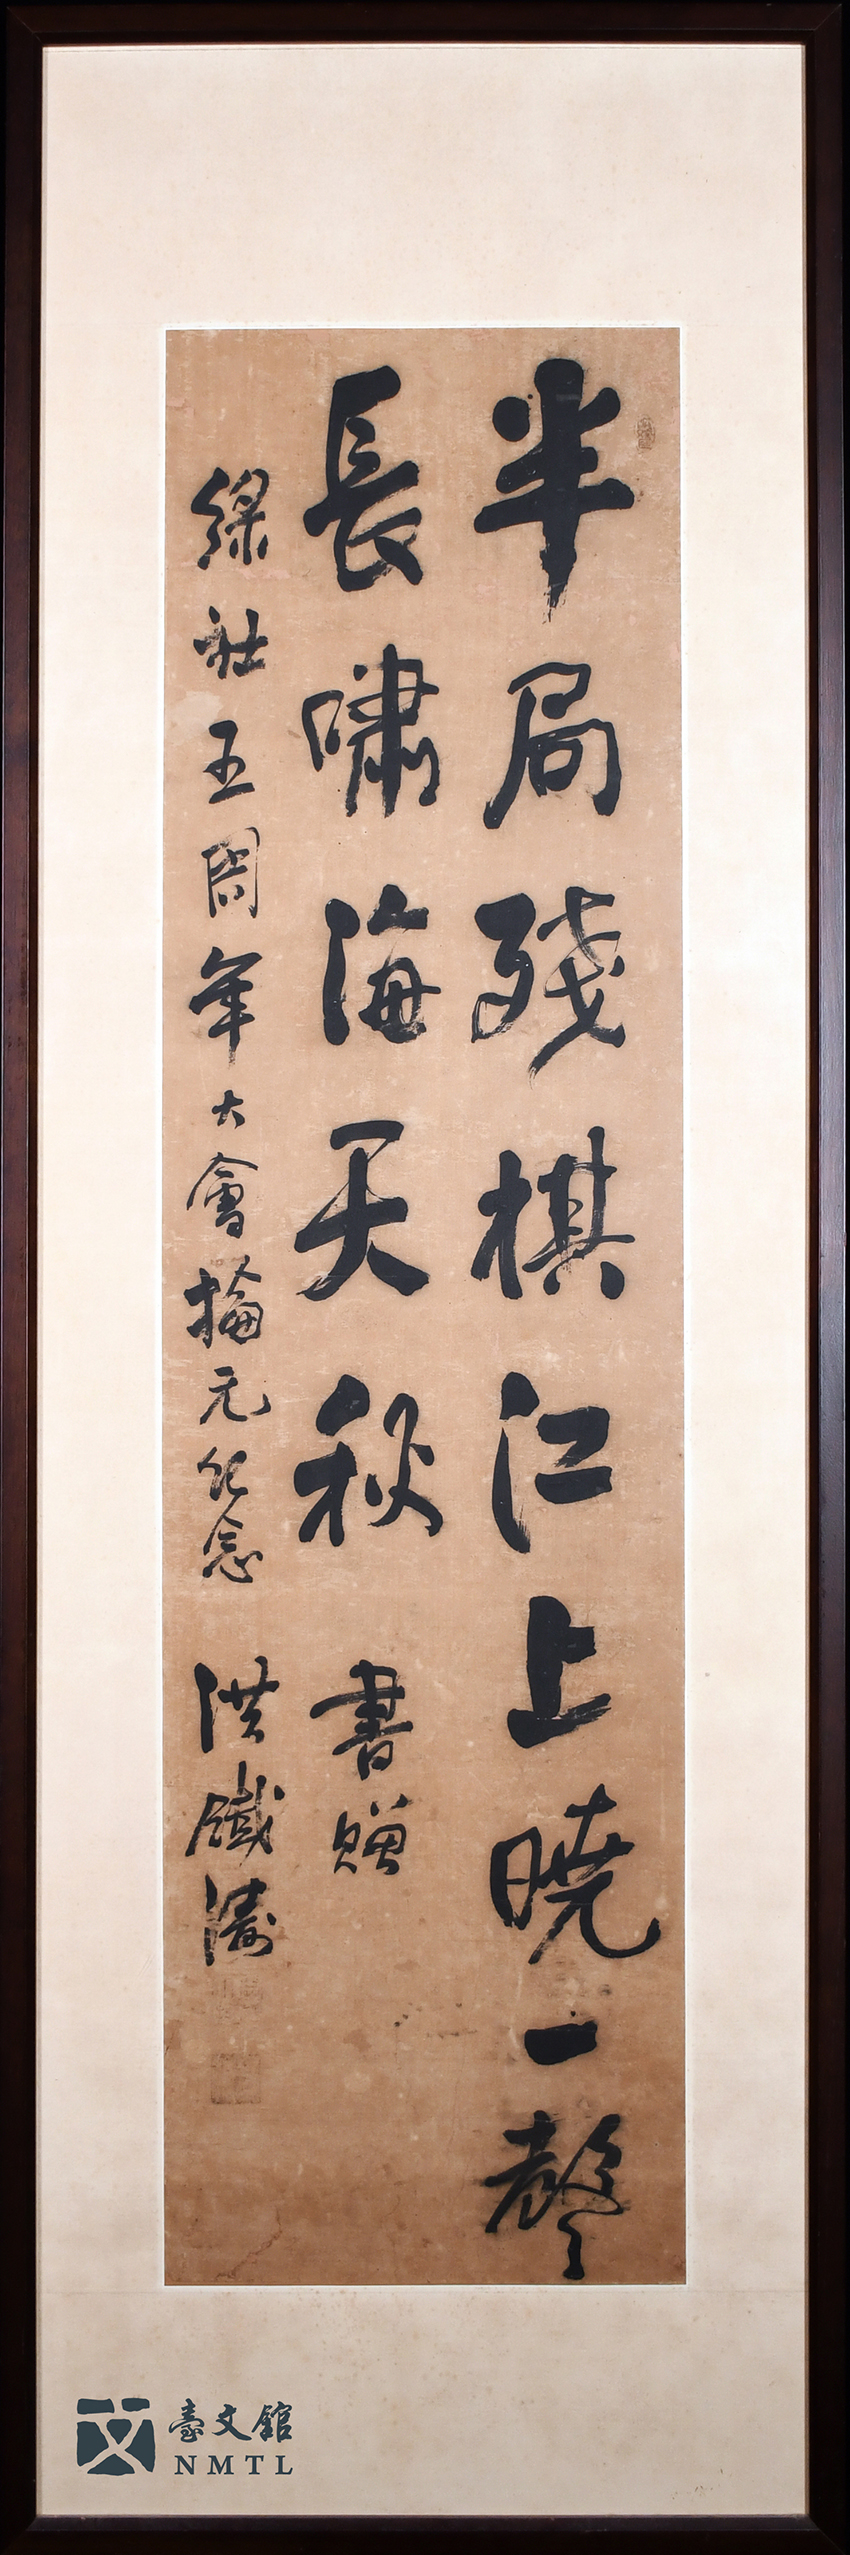 半局殘棋江上曉一聲
長嘯海天秋 書贈
綠社五周年大會掄元紀念 洪鐵濤
臺文館
NMTL